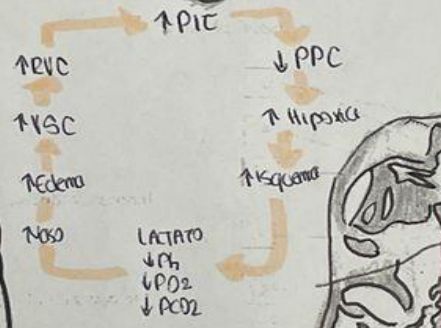 ↑PIC
↓PPC
↑Hipoxia
↑Isquemia
LACTATO
↓Ph
↓PO2
↓PCO2
↑Edema
↑VSC
↑RVC